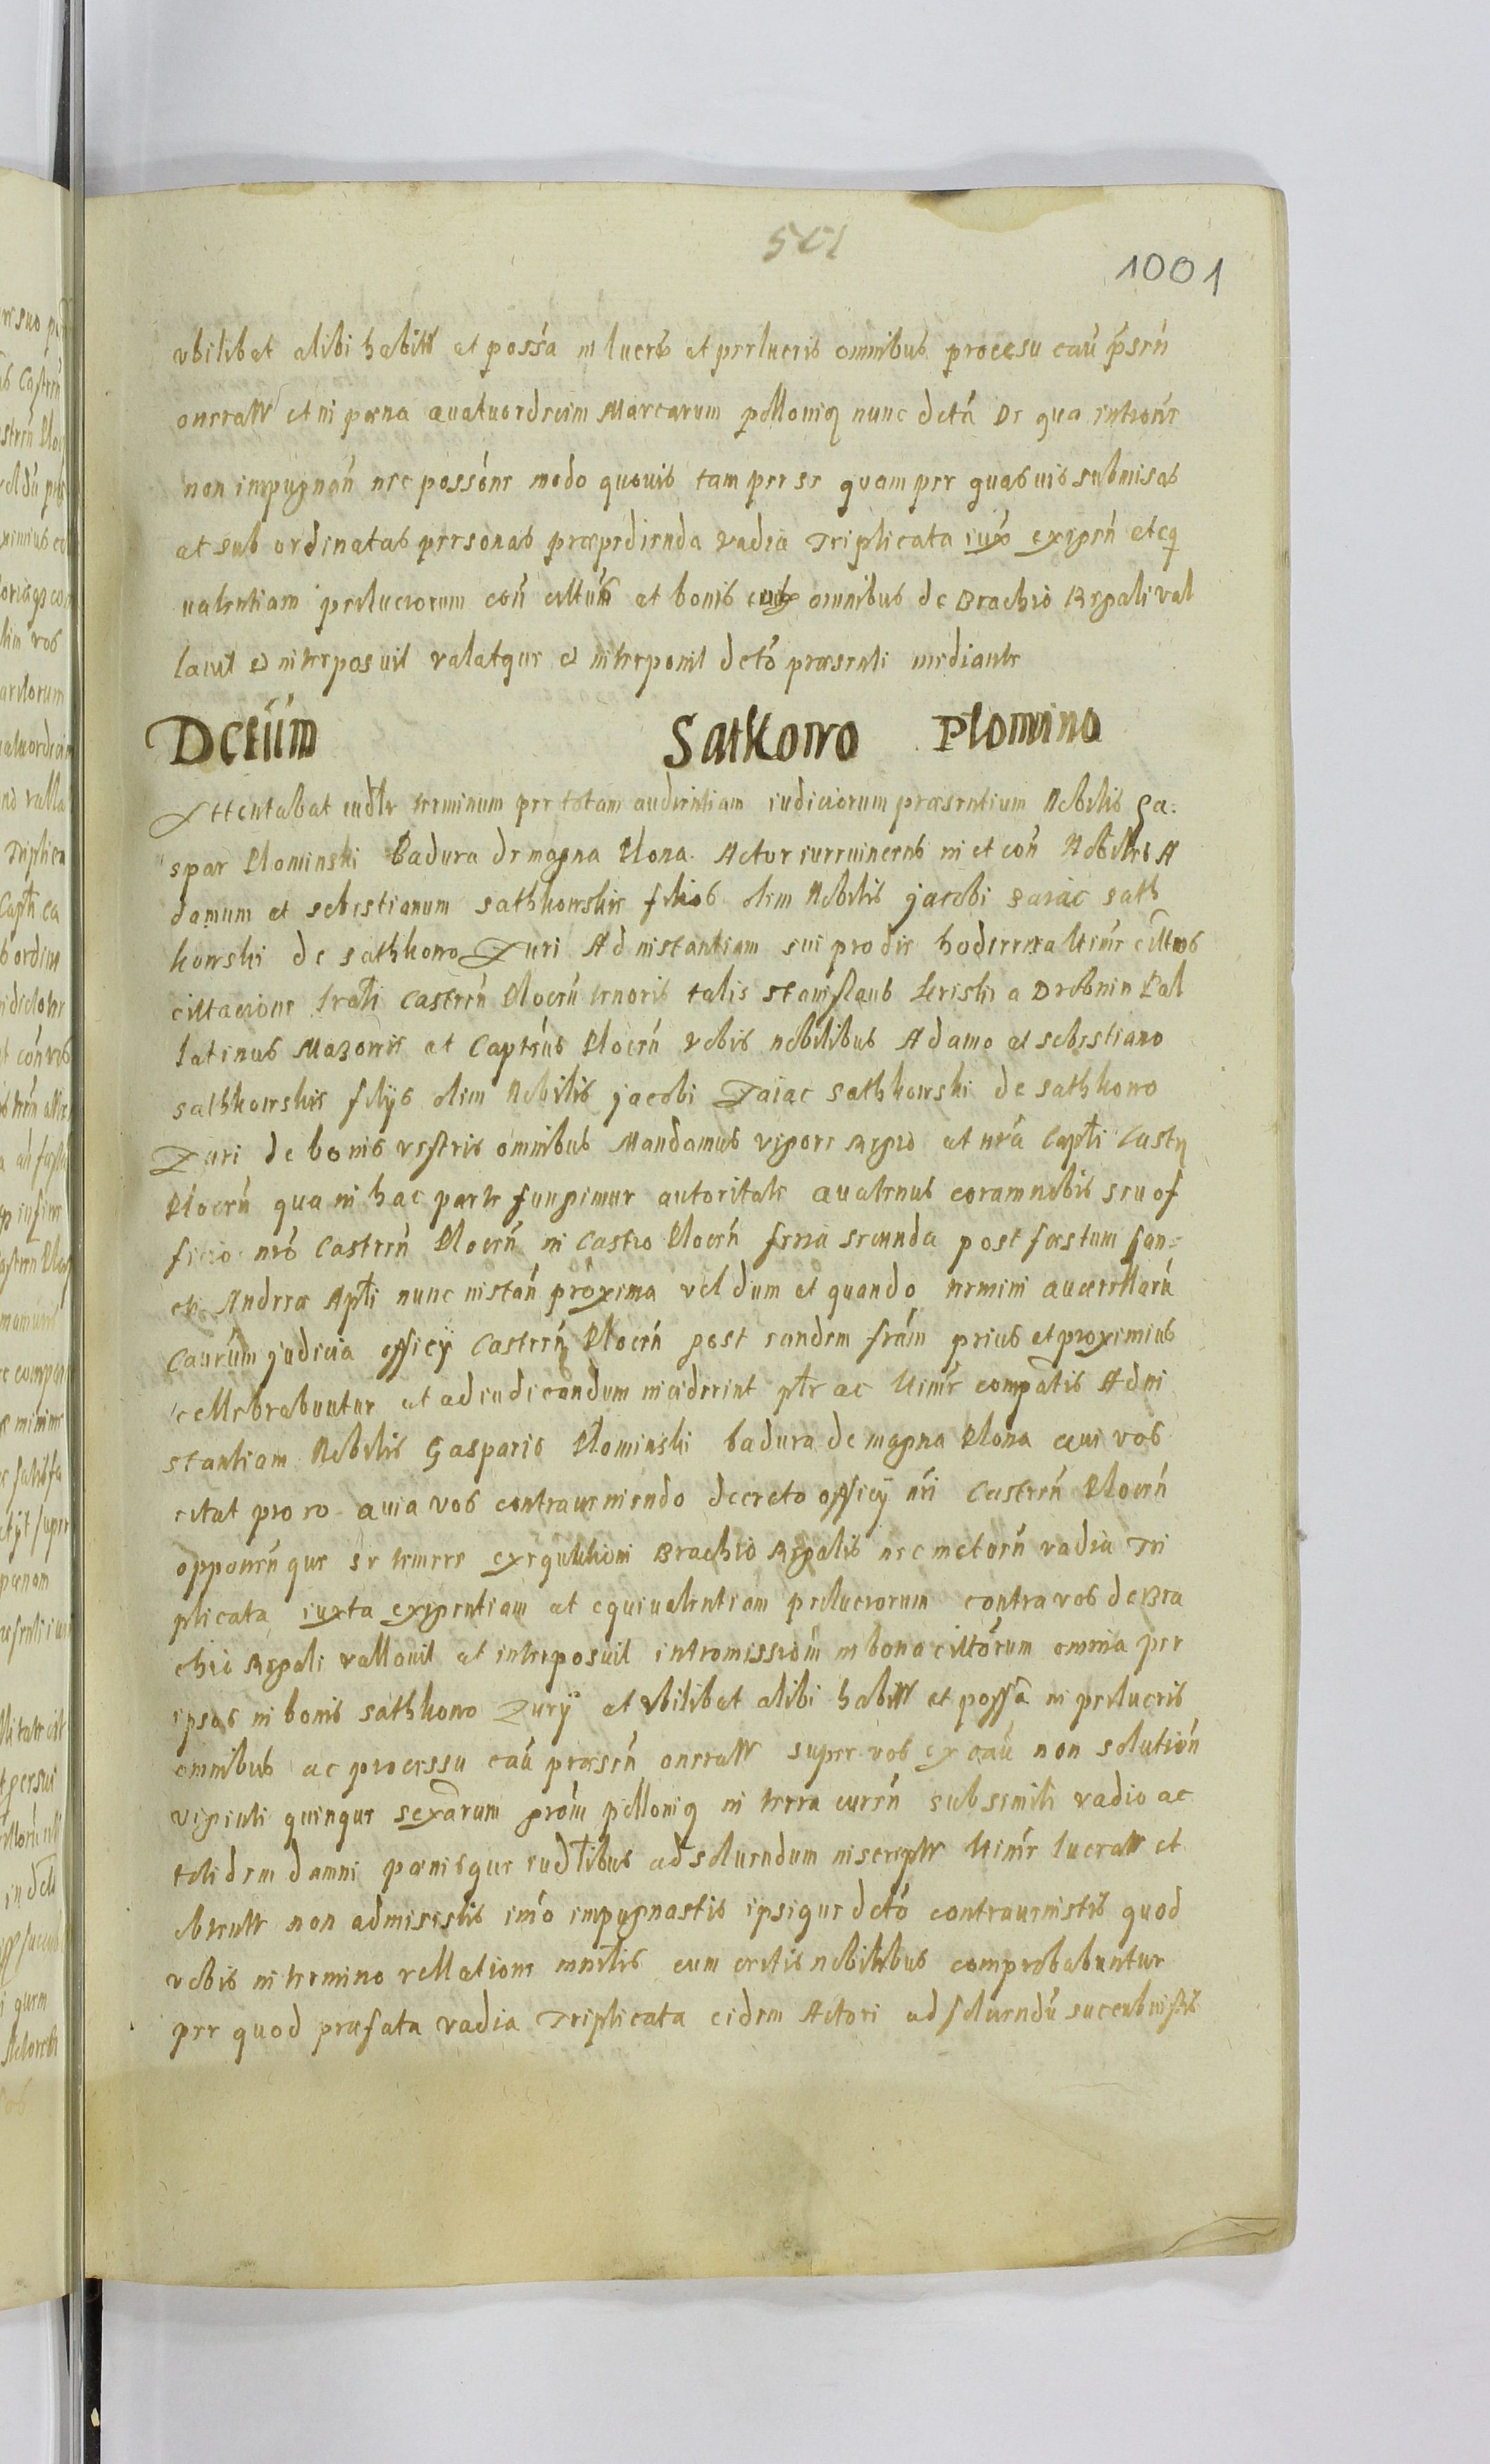 501
1001
vbilibet alibi habitis et possa in lucris et perlucris omnibus processu cau pserń
oneratis et in poena quatuordecim Marcarum polloniq nunc detá De qua intione
non impugnań nec possone modo quouis tam per se quam per quasuis submisas
et sub ordinatas personas praepedienda vadia Triplicata iux exigeń et eq
ualentiam perlucrorum coń cittum et bonis eius omnibus de Brachio Regali val
lauit et interposuit valatque et interponit deto praesenti mediante
Dctúm Satkowo Plomino
Attentabat iudlr terminum per totam audientiam iudiciorum praesentium Nobilis Ga:
spar Plominski Badura de magna Plona Actor iurevincens in et coń Nobiles A
damum et sebestianum sathkowskie filios olim Nobilis jacobi zaiac sath
kowski de sathkowo Zuri Ad instantiam sui pro die hodierna citos
cittacione trali Castreń Ploceń tenoris talis stanislaus Kriski a Drobnin Pal
latinus Mazowie et Captéus Ploceń vobis nobilibus Adamo et sebestiano
sathkowskie filijs olim Nobilis jacobi Zaiac sathkowski de sathkowo
Zuri de bonis vestris omnibus Mandamus vigore Regio et nra Capti Castr
Ploceń qua in hac parte fungimur autoritate quatenus coram nobis seu of
ficio nro Castreń Ploceń in Castro Ploceń feria secunda post faestum san=
cti Andreae Apli nunc instań proxima vel dum et quando nemini
Caurúm judicia officij Castreń Ploceń post eandem fram prius et proximius
cellebrabuntur et adiudicandum inciderint ptr ac compatis Ad in
stantiam Nobilis Gasparis Plominski badura de magna Plona qui vos
citat pro eo quia vos contraueniendo decreto officij nri Castreń Ploceń
opponeńque se temere exequutioni Brachio Regalis nec metoeń vadia Tri
plicata iuxta exigentiam et equiualentiam perlucrorum contra vos de Bra
chio Regali vallauit et interposuit intromissiońi in bona cittorum omnia per
ipsos in bonis sathkowo Zurij et vbilibet alibi habitis et possa in perlucris
omnibus ac processu cau praeseń oneratis super vos ex cau non solutioń
viginti quinque sexarum prom polloniq in terra cureń sub simili vadio ac
tolidem damni poenisque iudtibus ad soluendum lucratis et
obtentis non admisistis imo impugnastis ipsique deto contrauenistis quod
vobis in termino rellatione cum eritis nobilibus comprobabuntur
per quod praefata vadia Triplicata eidem Actori ad soluendú succubuistis